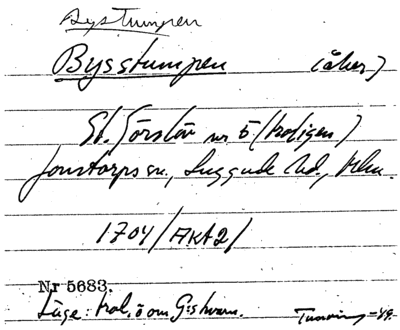 Bysstumpen
Bysstumpen (åker)
St. Görslöv nr 5 (troligen)
Jonstorps sn., Luggude hd., Mlm.
1704/AKA2/
Nr 5683.
Läge: trol. ö om G:s kvarn. -49.